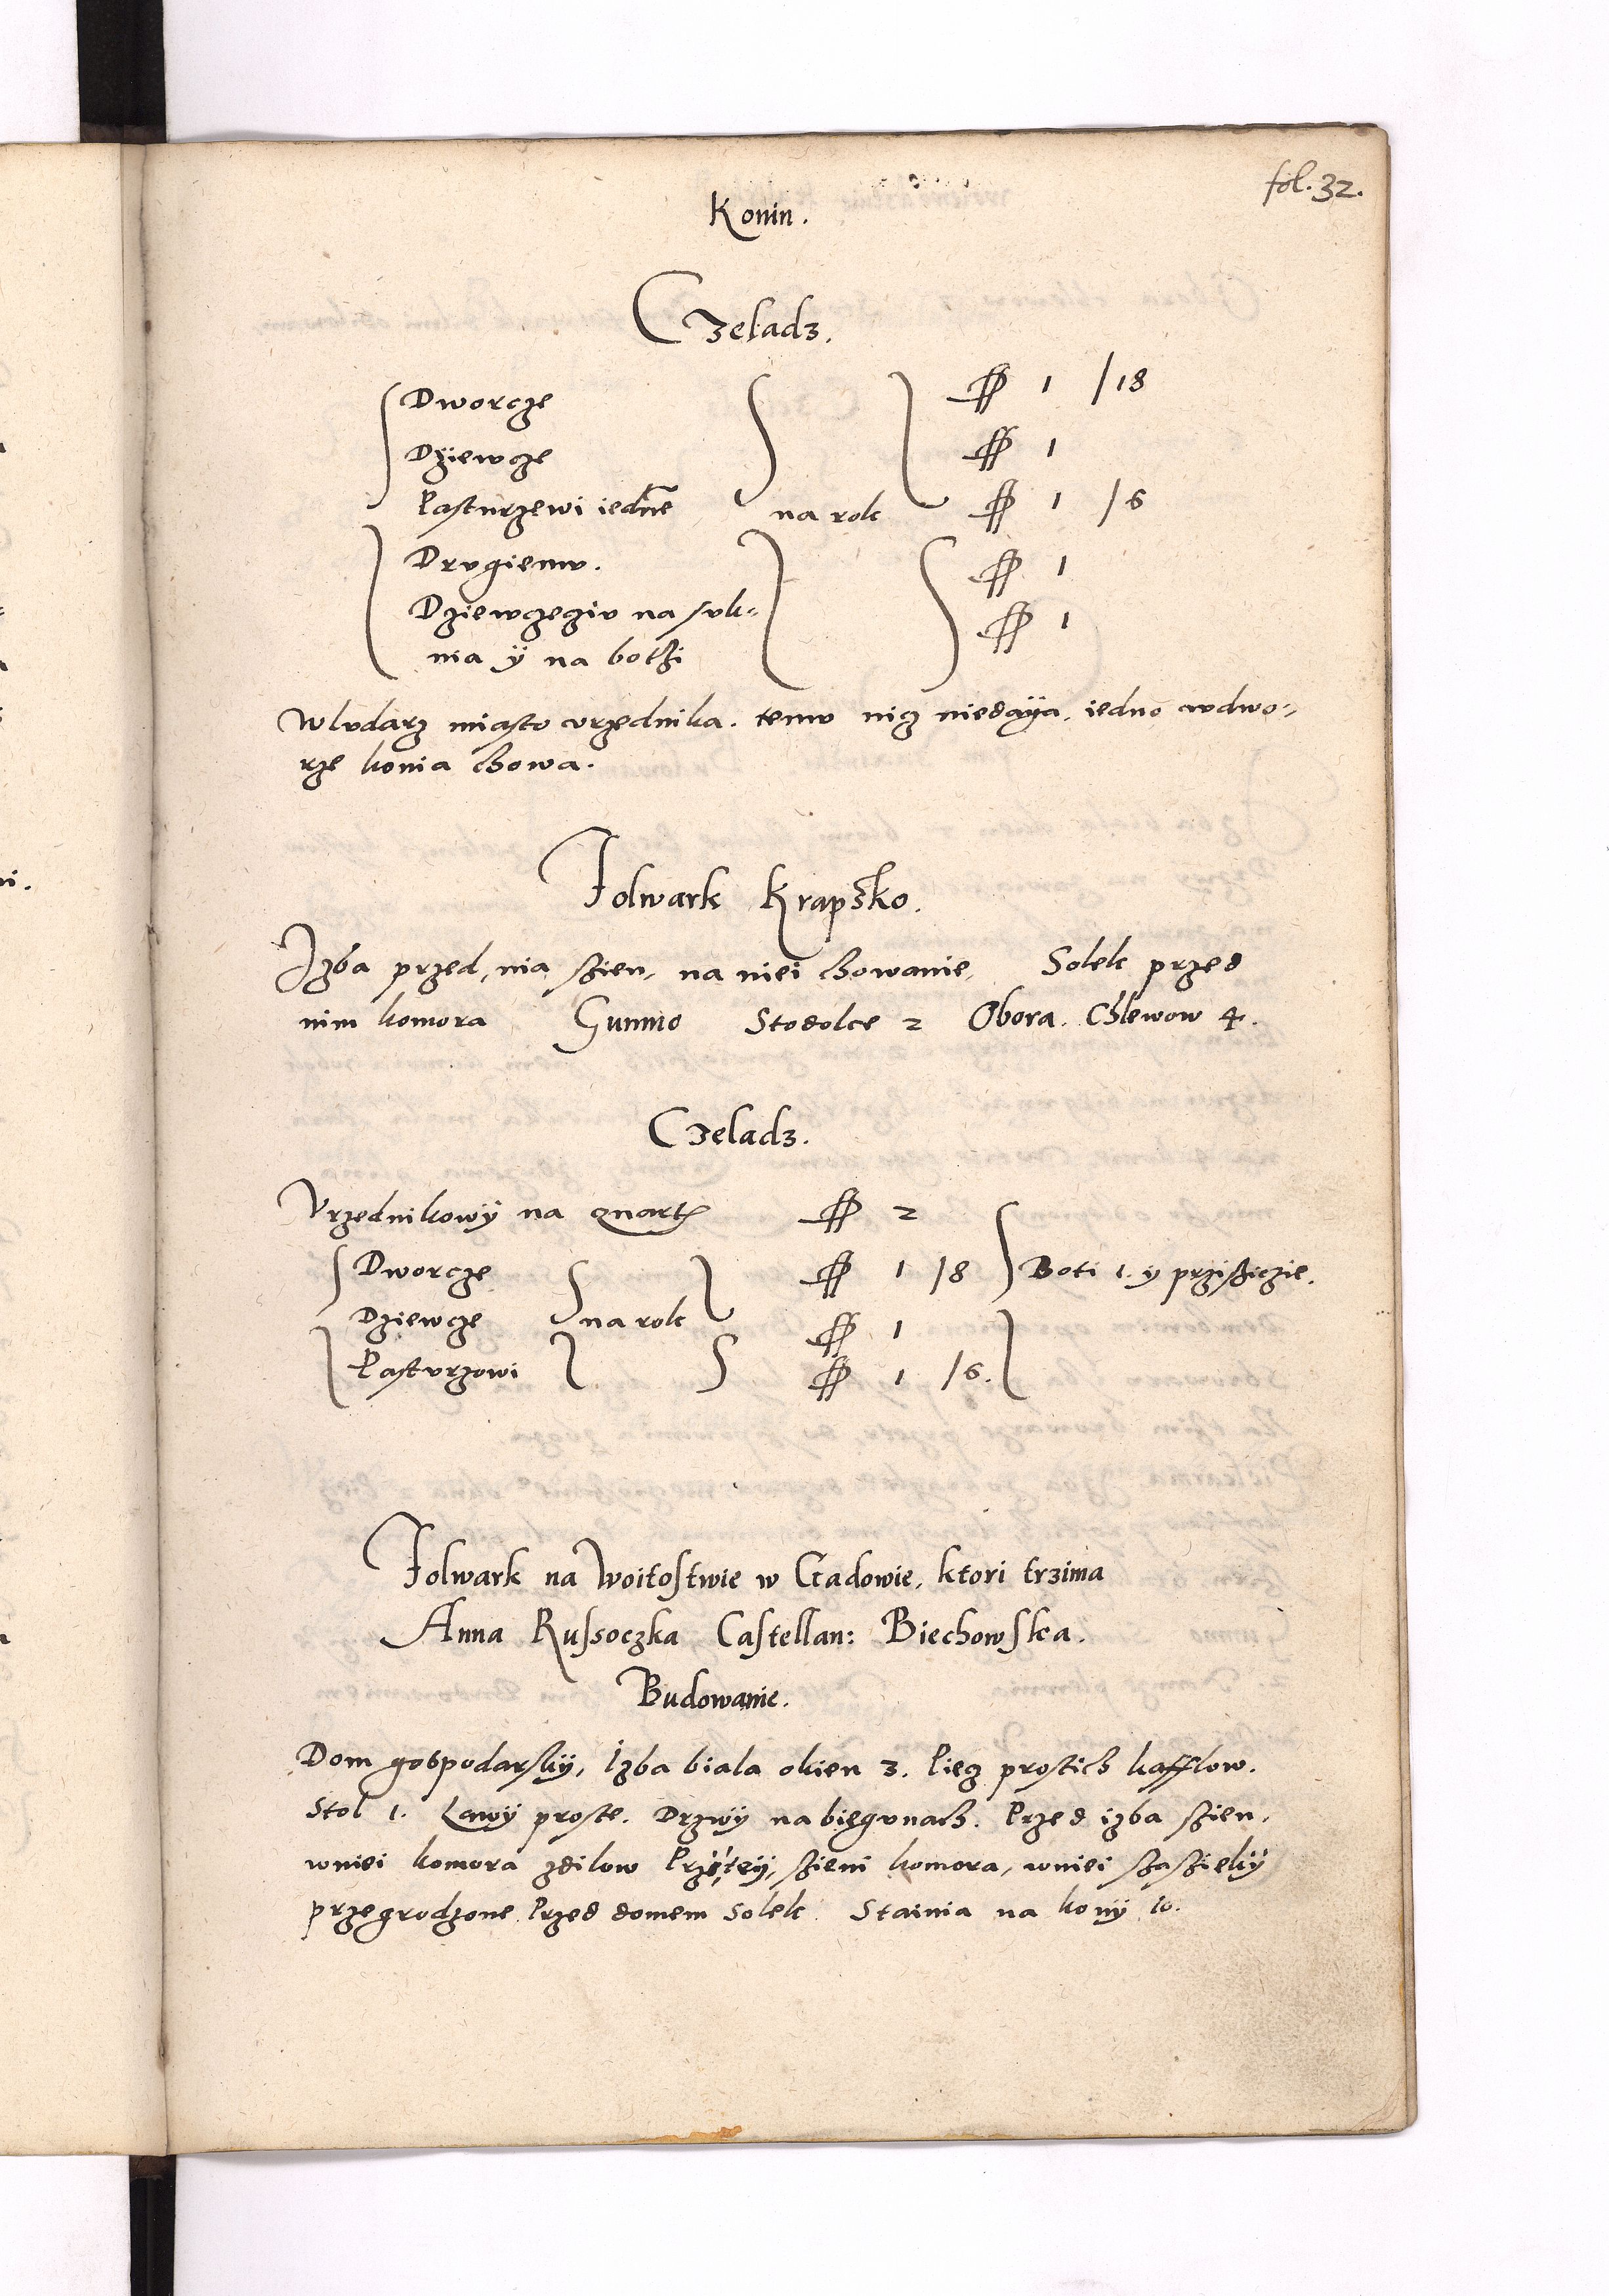 fol. 32.
Konin.
Czeladz.
Dworcze 1 /18
Dziewcze 1
Pasturzewi iedne na rok 1 /6
Drugiemu. 1
Dziewczeziu na suk= 1
nia ÿ na bothi
Wludarz miasto urzednika. temu nicz niedaÿa, iedno wdwo=
rze konia chowa.
Folwark Krapsko.
Izba przed, nia szien, na niei chowanie, Solek przed
nim komora Gumno Stodolce 2 Obora. Chlewow 4.
Czeladz.
Vrzednikowÿ na quart 2
Dworcze 1 /8 Boti 1. y prziszczie.
Dziewcze na rok 1
Pasturzowi 1 /6.
Folwark na Woitostwie w Gadowie, ktori trzima
Anna Russoczka Castellan: Biechowska.
Budowanie.
Dom gospodarskÿ, Izba biala okien 3. Piecz prostich kafflow.
Stol 1. Lawÿ proste. Drzwÿ na biegunach. Przed izba szien,
wniei komora zdilow Prz teÿ, szieni komora, wniei szasziekÿ
przegrodzone Przed domem Solek. Stainia na konÿ 10.